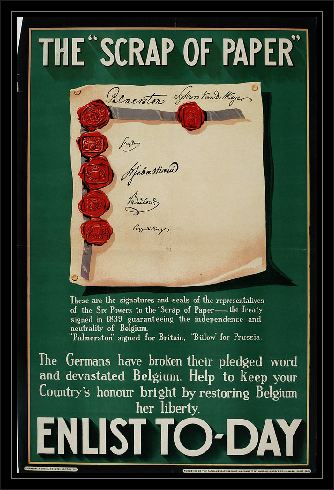 THE "SCRAP OF PAPER"
Palmerston Sylvan Van de Weyer
These are the signatures and seals of the representatives
of the Six Powers to the "Scrap of Paper"—the treaty
signed in 1839 guaranteeing the independence and
neutrality of Belgium.
"Palmerston" signed for Britain, "Bülow" for Prussia.
The Germans have broken their pledged word
and devastated Belgium. Help to Keep your
Country's honour bright by restoring Belgium
her liberty.
ENLIST TO-DAY